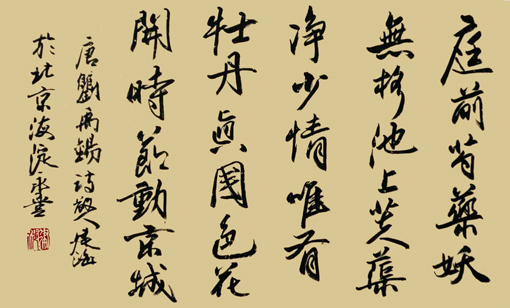 庭前芍藥妖
無格池上芙蕖
净少情唯有
牡丹眞國色花
開時節動京城
唐劉禹錫詩
於北京海淀